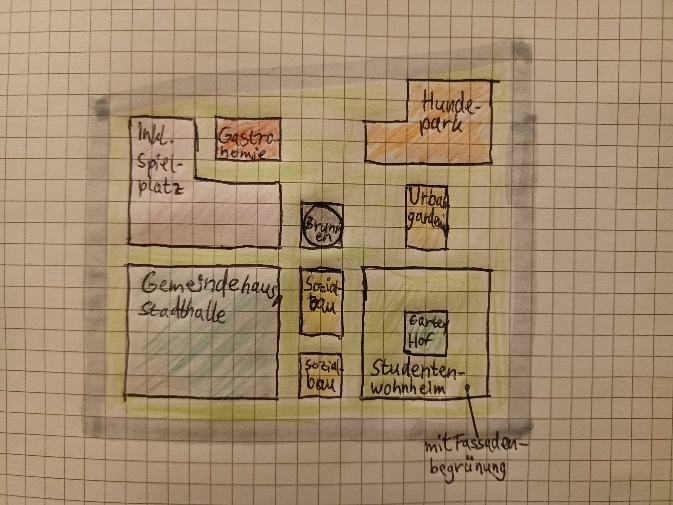 Inkl.
Spiel-
platz
Gastro-
nomie
Hunde-
park
Urban
garden
Brunn
en
Gemeindehaus
Stadthalle
Sozial
bau
Sozial
bau
Garten
Hof
Studenten-
wohnheim
mit Fassaden-
begrünung